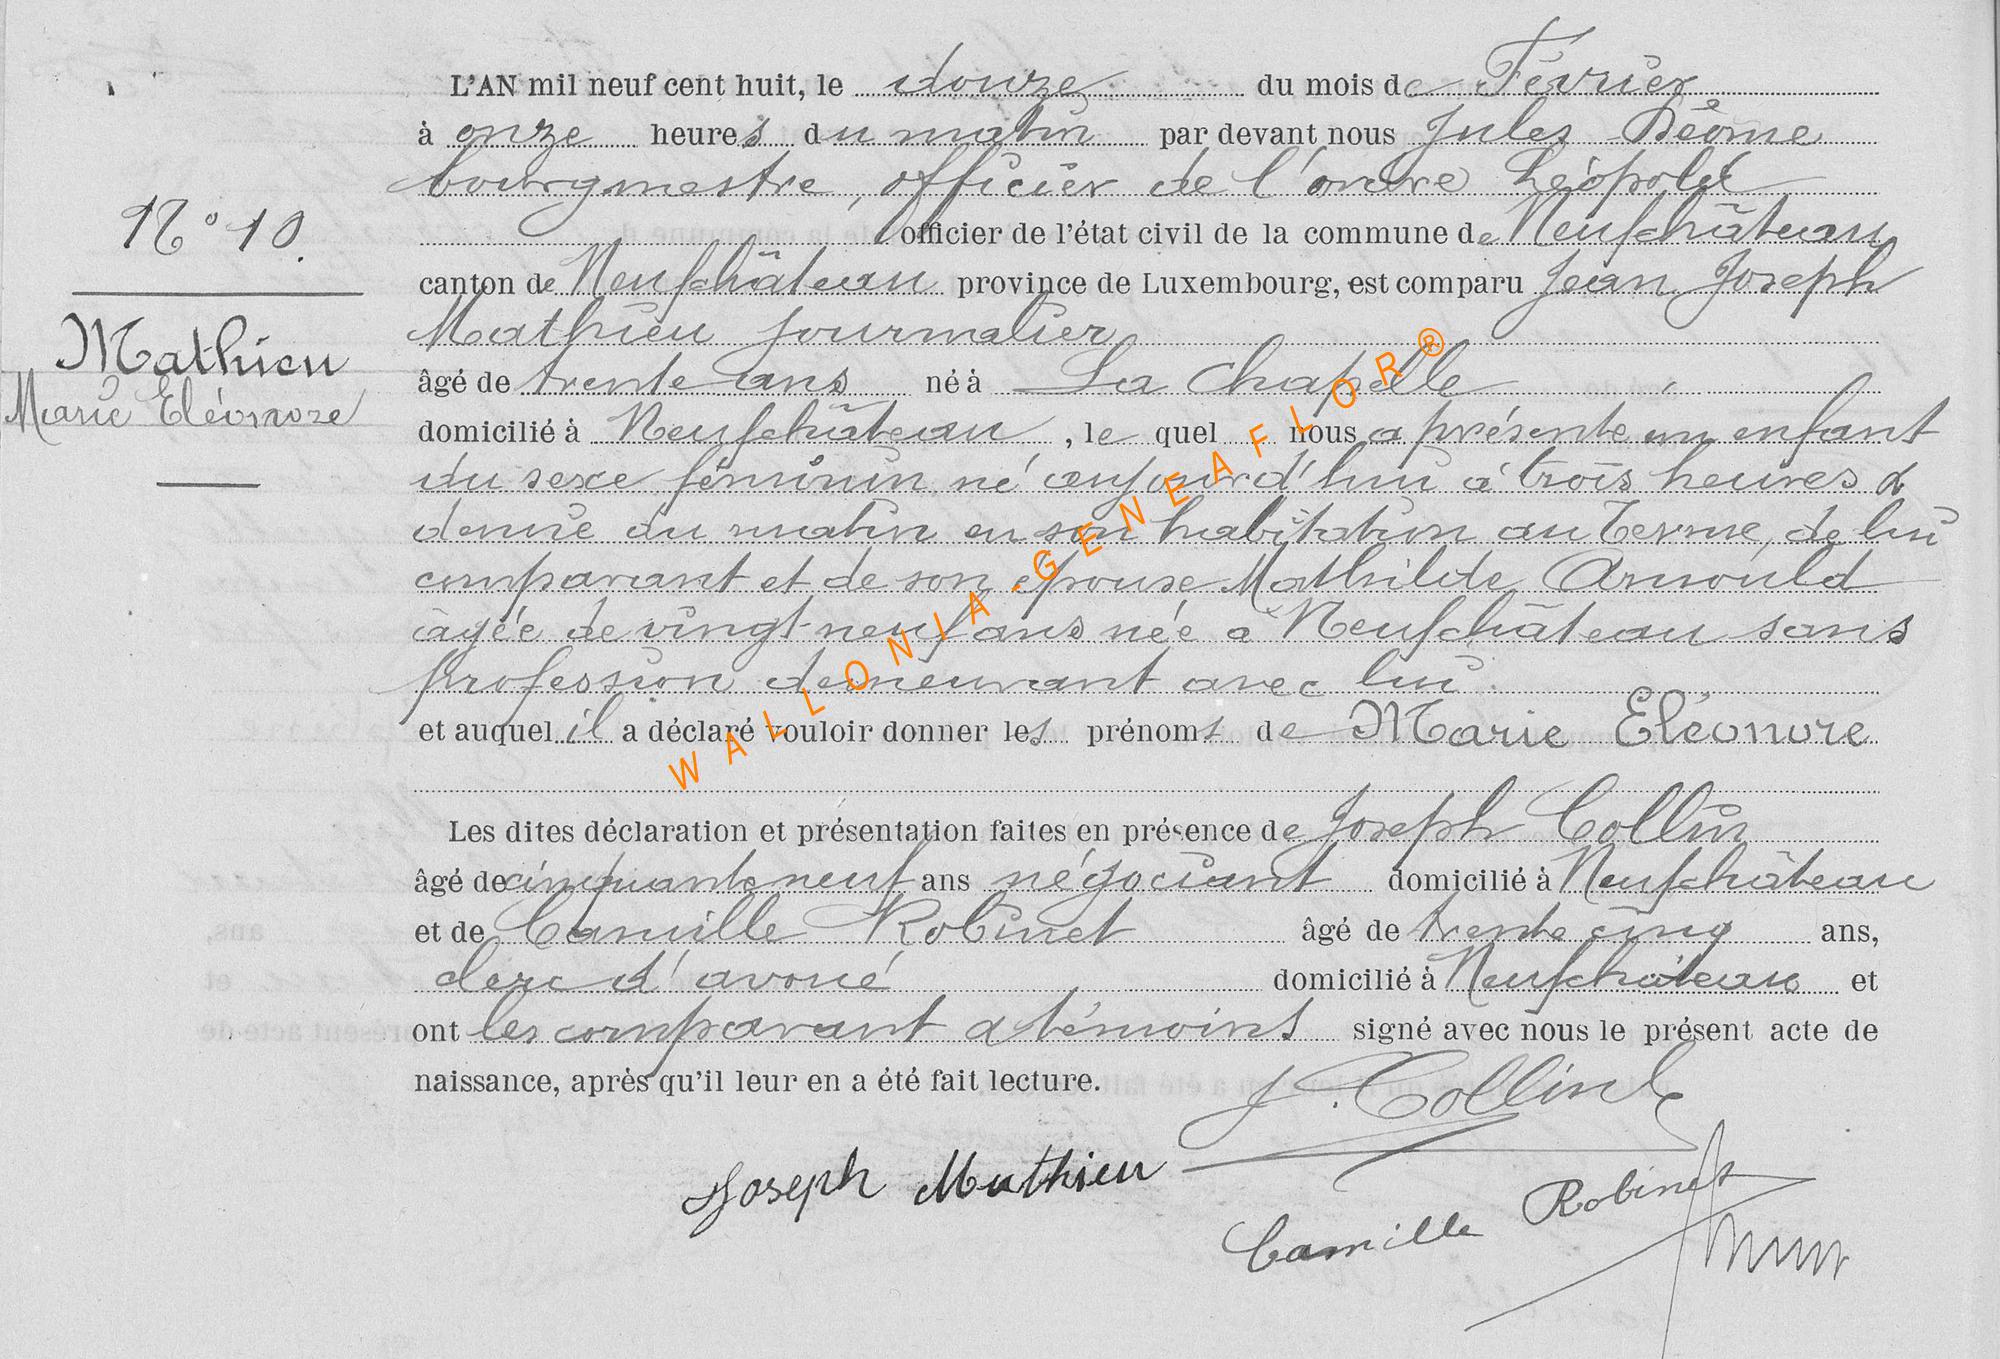 L'AN mil neuf cent huit, le douze du mois de Février
à onze heures du matin par devant nous Jules
bourgmestre, officier de l'ordre Léopold
N° 10.
officier de l'état civil de la commune de Neufchâteau
canton de Neufchâteau province de Luxembourg, est comparu Jean Joseph
Mathieu journalier
Mathieu
Marie Eléonore
âgé de trente ans né à La Chapelle
domicilié à Neufchâteau, le quel nous a présenté un enfant
du sexe féminin né aujourd'hui à trois heures &
demie du matin en son habitation au Terme, de lui
comparant et de son épouse Mathilde Arnould
âgée de vingt-neuf ans née à Neufchâteau sans
profession demeurant avec lui.
et auquel il a déclaré vouloir donner les prénoms de Marie Eléonore
Les dites déclaration et présentation faites en présence de Joseph Collin
âgé de cinquante neuf ans négociant domicilié à Neufchâteau
et de Camille Robinet âgé de trente cinq ans,
clerc d'avoué domicilié à Neufchâteau et
ont les comparant & témoins signé avec nous le présent acte de
naissance, après qu'il leur en a été fait lecture.
J. Collin
Joseph Mathieu
Camille Robinet
WALLONIA.GENEAFLOR®